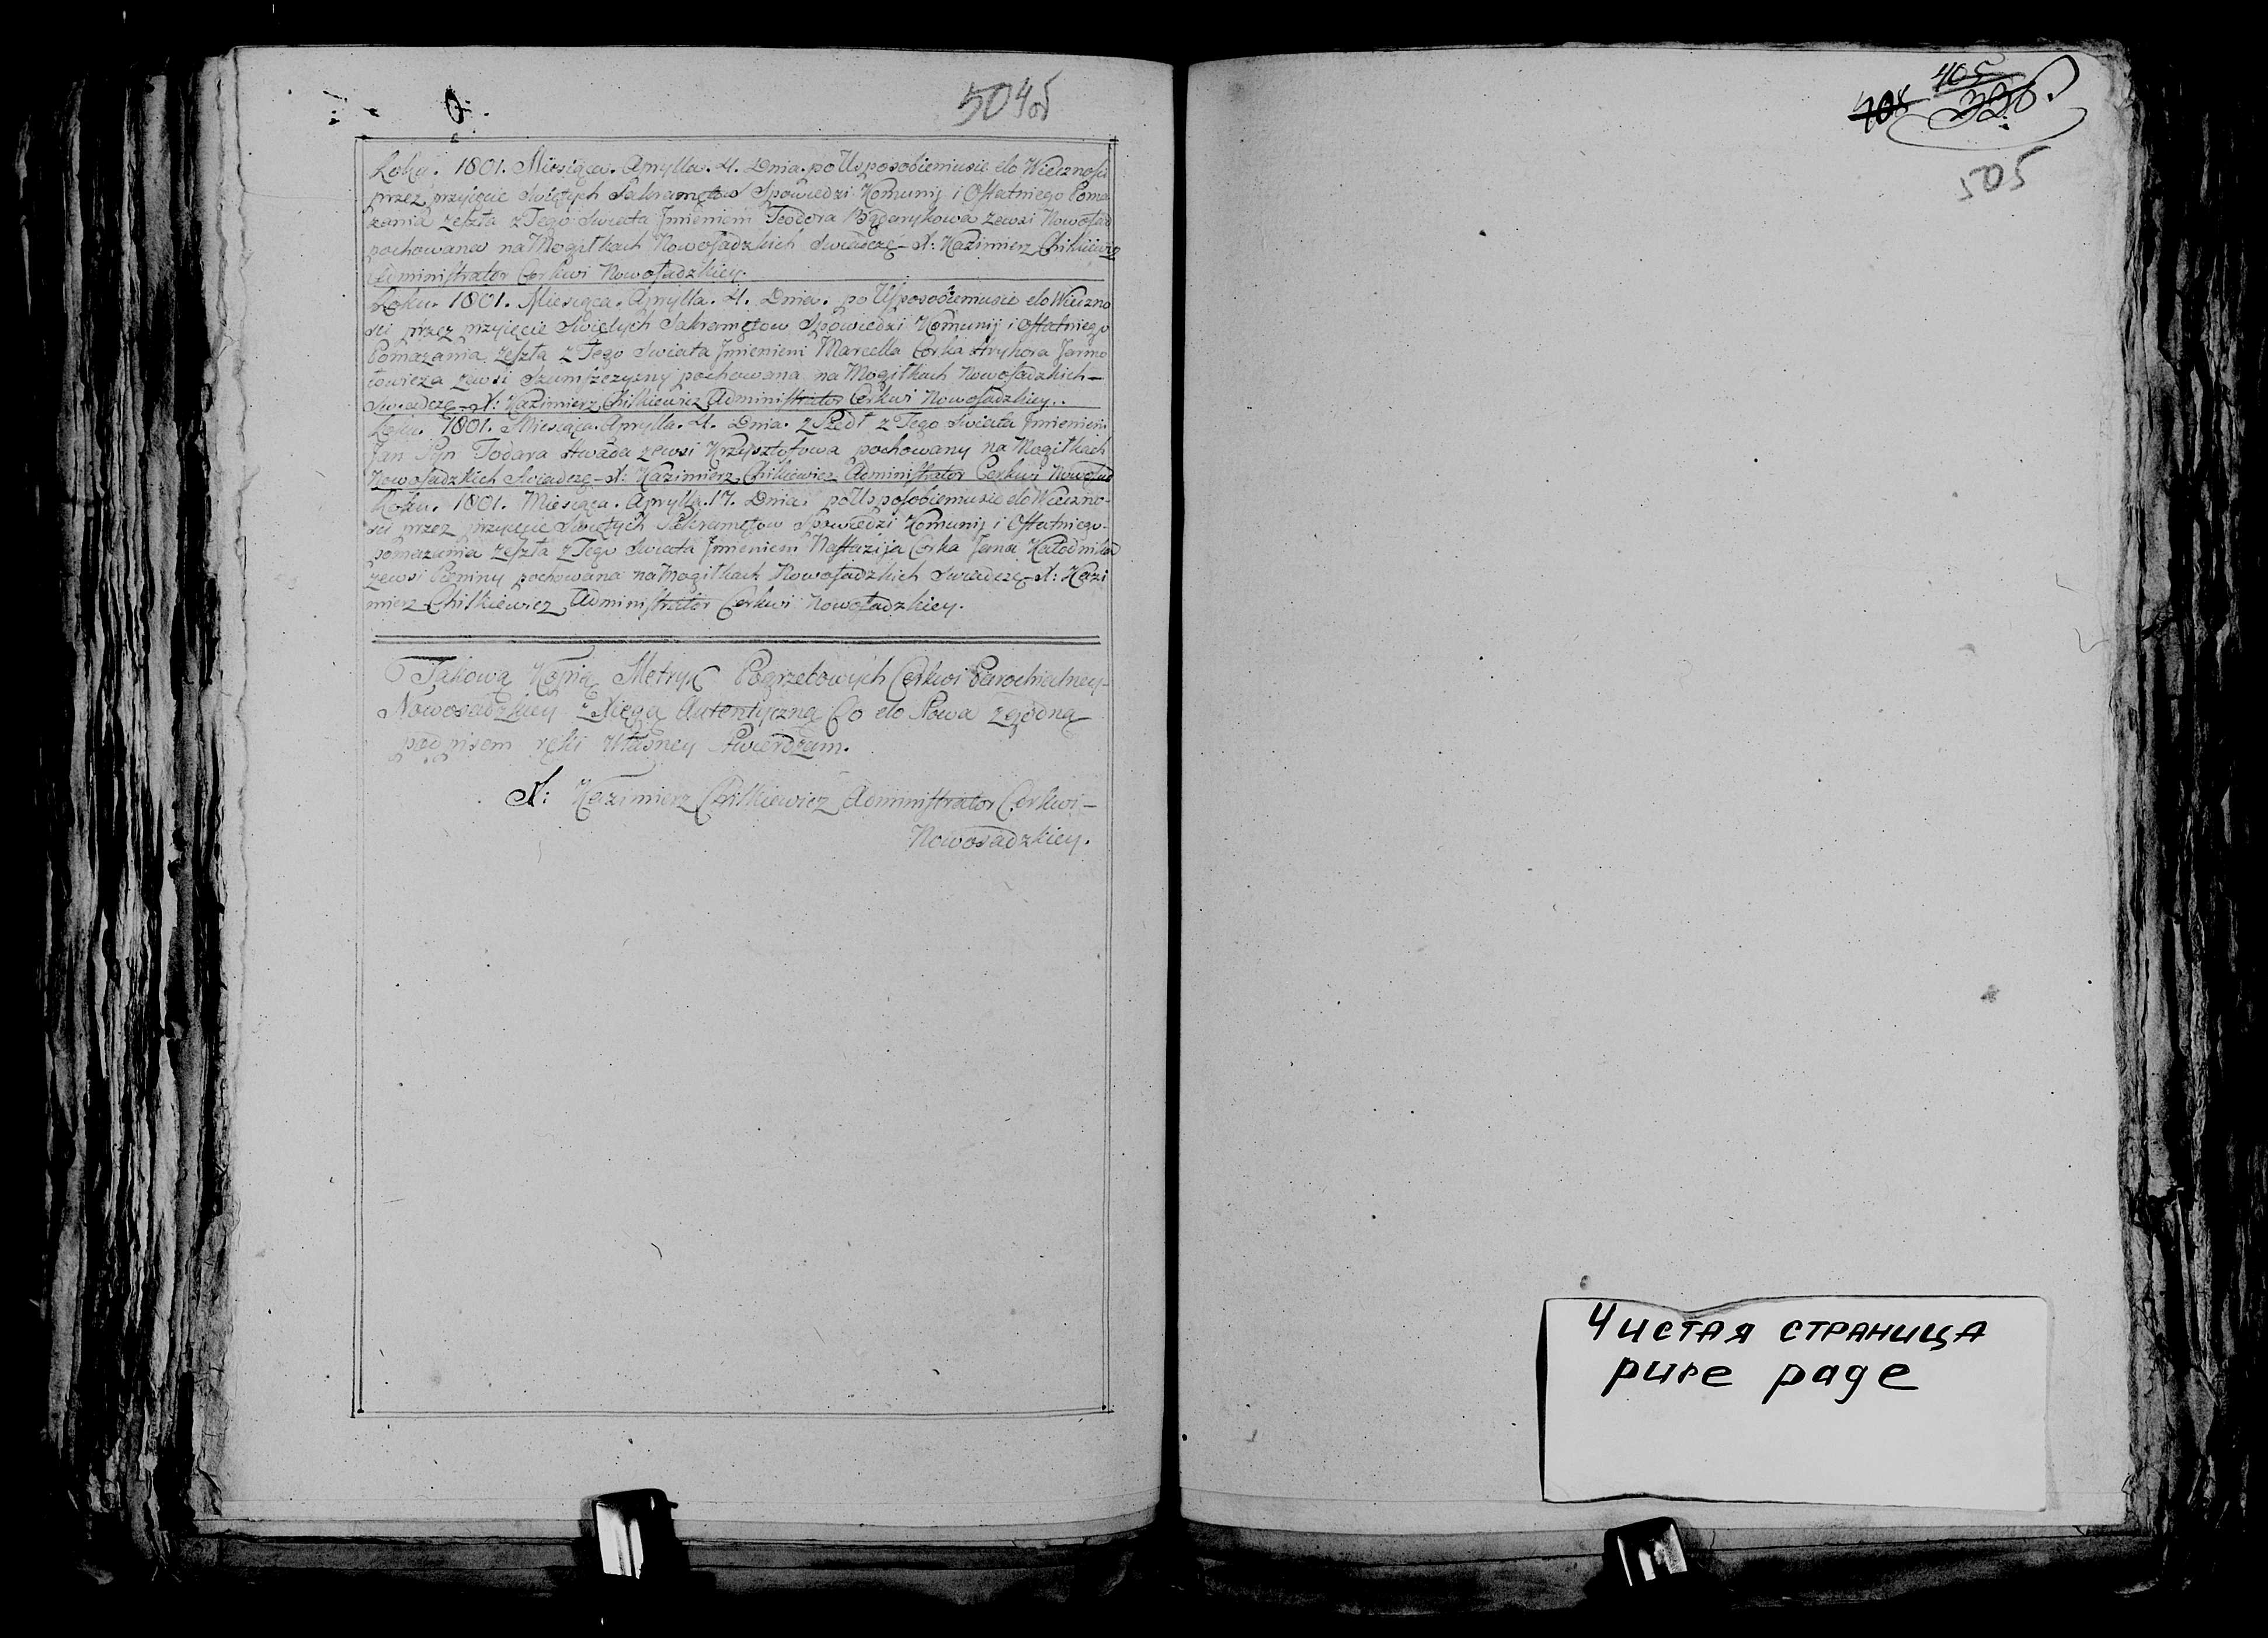 504об
Roku. 1801. Miesiąca. Aprylla. 4. Dnia. po Usposobieniusie do Wiecznosci
przez przyięcie Swiętych Sakramętow Spowiedzi Komunij i Ostatniego Poma
zania zeszła z Tego Swiata Jmieniem Teodora zewsi Nowosad
pochowana na Mogiłkach Nowosadzkich Swiadczę – X: Kazimierz Chilkiewicz
Administrator Cerkwi Nowosadzkiey.
Roku. 1801. Miesiąca. Aprylla. 4. Dnia. po Usposobieniusie do Wieczno
sci przez przyięcie Swiętych Sakramętow Spowiedzi Komunij i Ostatniego
Pomazania zeszła z Tego Swiata Jmieniem Marcella Corka Hryhora Jarmo
łowicza zewsi Szumszczyzny pochowana na Mogiłkach Nowosadzkich –
Swiadczę – X: Kazimierz Chilkiewicz Administrator Cerkwi Nowosadzkiey.
Roku. 1801. Miesiąca. Aprylla. 4. Dnia. zszedł z Tego Swiata Jmieniem
Jan Syn Todara zewsi Krzysztofowa pochowany na Mogiłkach
Nowosadzkich Swiadczę – X: Kazimierz Chilkiewicz Administrator Cerkwi Nowosad
Roku. 1801. Miesiąca. Aprylla. 17. Dnia. po Usposobieniusie do Wieczno-
sci przez przyięcie Swiętych Sakramętow Spowiedzi Komunij i Ostatniego
pomazania zeszła z Tego Swiata Jmieniem Nastazija Corka Jana
zewsi pochowana na Mogiłkach Nowosadzkich Swiadczę – X: Kazi
mierz Chilkiewicz Administrator Cerkwi Nowosadzkiey.
Takową Kopią Metryk Pogrzebowych Cerkwi Parochialney
Nowosadzkiey z Xięgą Autentyczną Co do Słowa zgodną
podpisem ręki własney Stwierdzam.
X: Kazimierz Chilkiewicz Administrator Cerkwi –
Nowosadzkiey.
405
505
Чистая страница
pure page